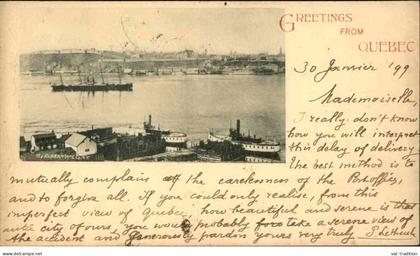 GREETINGS
FROM
QUEBEC
30 Janvier '99
Mademoiselle
I really don't know
how you will interpret
this delay of delivery
the best method is to
mutually complain off the carelessness of the Postoffices,
and to forgive all. If you could only realise, from this
imperfect view of Quebec, how beautiful and serene is that
antic city of ours, you would probably take a serene view of
the accident and generously pardon yours very truly